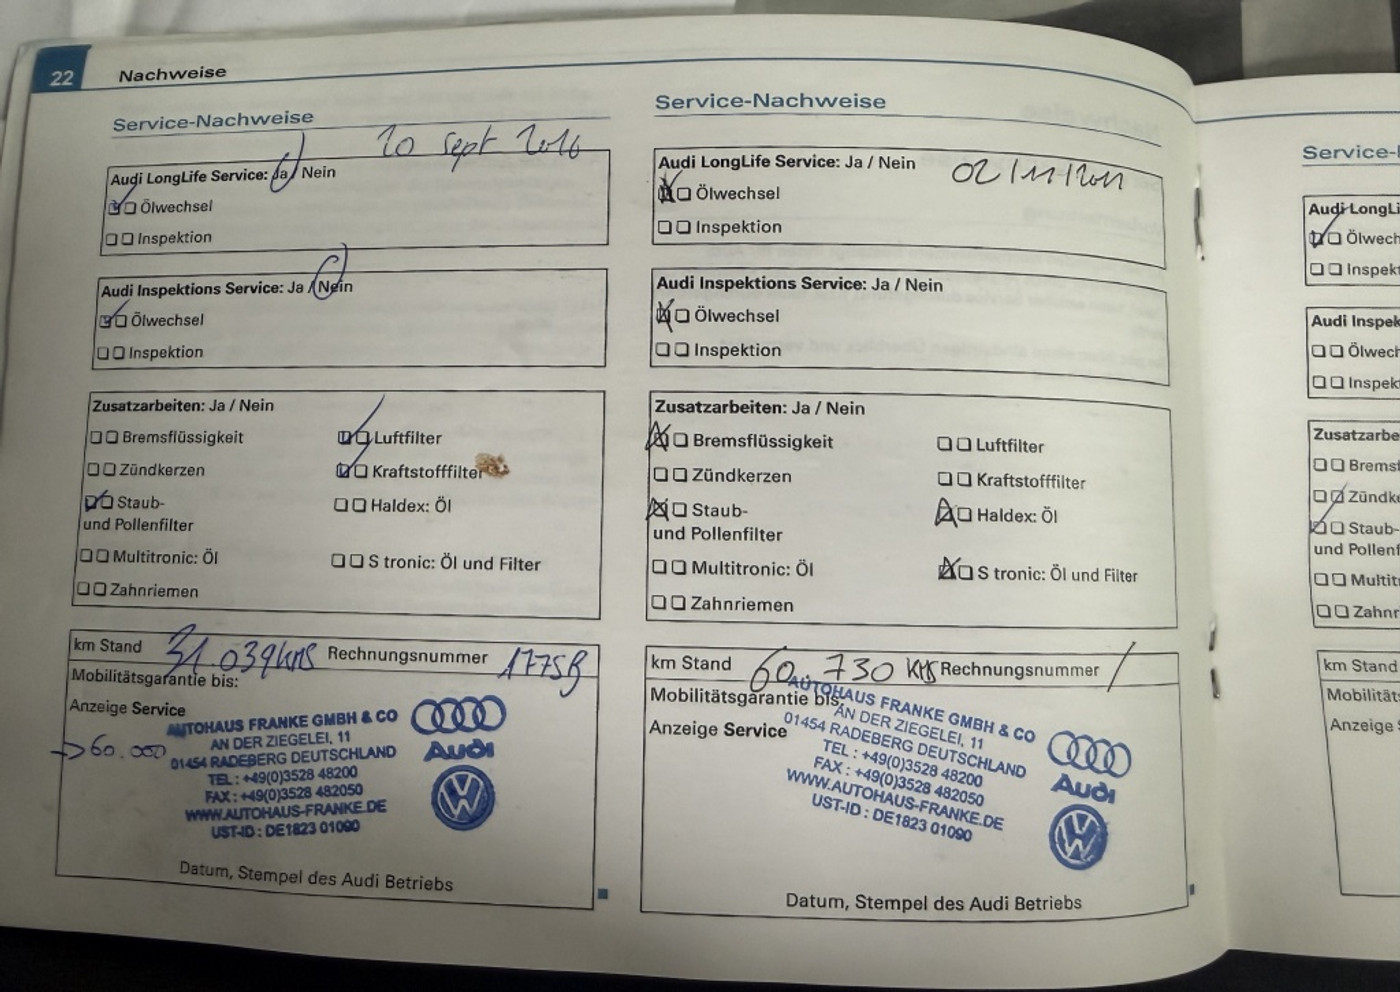 22 Nachweise
Service-Nachweise
20 Sept 2010
Audi LongLife Service: Ja / Nein
Ölwechsel
Inspektion
Audi Inspektions Service: Ja / Nein
Ölwechsel
Inspektion
Zusatzarbeiten: Ja / Nein
Bremsflüssigkeit Luftfilter
Zündkerzen Kraftstofffilter
Staub- Haldex: Öl
und Pollenfilter
Multitronic: Öl S tronic: Öl und Filter
Zahnriemen
km Stand 31.039 kms Rechnungsnummer 1775B
Mobilitätsgarantie bis:
Anzeige Service
→60.000
AUTOHAUS FRANKE GMBH & CO
AN DER ZIEGELEI, 11
01454 RADEBERG DEUTSCHLAND
TEL : +49(0)3528 48200
FAX : +49(0)3528 482050
WWW.AUTOHAUS-FRANKE.DE
UST-ID : DE1823 01090
Audi
Datum, Stempel des Audi Betriebs
Service-Nachweise
Audi LongLife Service: Ja / Nein 02/11/2011
Ölwechsel
Inspektion
Audi Inspektions Service: Ja / Nein
Ölwechsel
Inspektion
Zusatzarbeiten: Ja / Nein
Bremsflüssigkeit Luftfilter
Zündkerzen Kraftstofffilter
Staub- Haldex: Öl
und Pollenfilter
Multitronic: Öl S tronic: Öl und Filter
Zahnriemen
km Stand 60.730 KMS Rechnungsnummer /
Mobilitätsgarantie bis:
Anzeige Service
AUTOHAUS FRANKE GMBH & CO
AN DER ZIEGELEI, 11
01454 RADEBERG DEUTSCHLAND
TEL : +49(0)3528 48200
FAX : +49(0)3528 482050
WWW.AUTOHAUS-FRANKE.DE
UST-ID : DE1823 01090
Audi
Datum, Stempel des Audi Betriebs
Service-
Audi LongLi
Ölwech
Inspekt
Audi Inspek
Ölwech
Inspek
Zusatzarbe
Brems
Zündke
Staub-
und Pollenf
Multit
Zahnr
km Stand
Mobilität
Anzeige